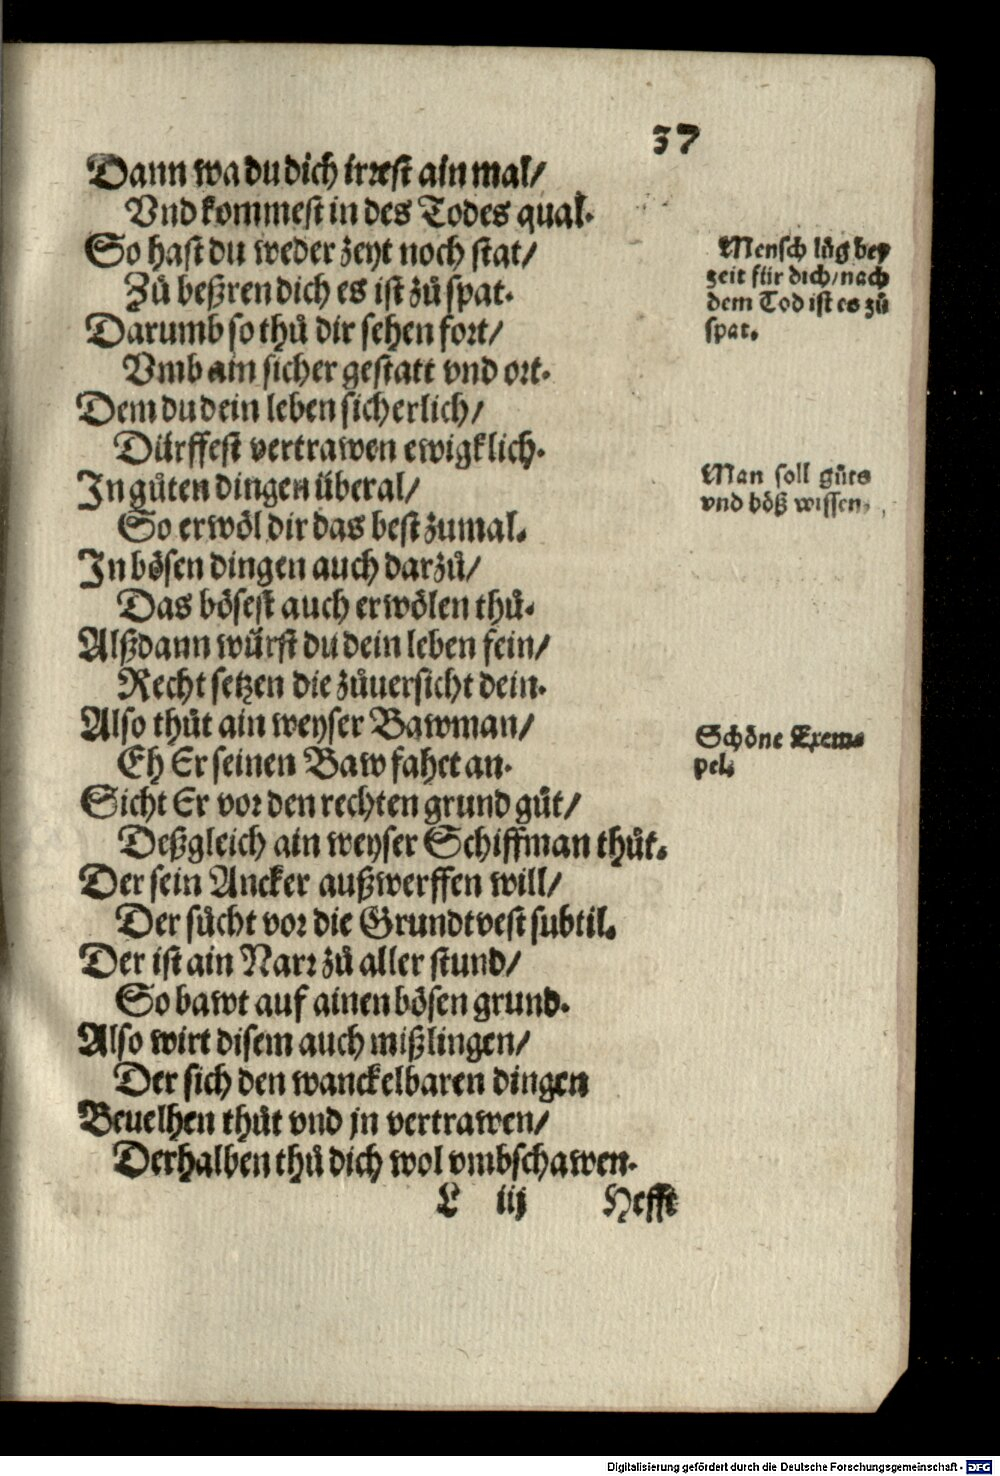 37
Dann wa du dich irrest ain mal/
Vnd kommest in des Todes qual.
So hast du weder zeyt noch stat/
Zů beßren dich es ist zů spat.
Darumb so thů dir sehen fort/
Vmb ain sicher gestatt vnd ort.
Dem du dein leben sicherlich/
Dürffest vertrawen ewigklich.
In gůten dingen überal/
So erwöl dir das best zumal.
In bösen dingen auch darzů/
Das bösest auch erwölen thů.
Alßdann würst du dein leben fein/
Recht setzen die zůuersicht dein.
Also thůt ain weyser Bawman/
Eh Er seinen Baw fahet an.
Sicht Er vor den rechten grund gůt/
Deßgleich ain weyser Schiffman thůt.
Der sein Ancker außwerffen will/
Der sůcht vor die Grundtvest subtil.
Der ist ain Narr zů aller stund/
So bawt auf ainen bösen grund.
Also wirt disem auch mißlingen/
Der sich den wanckelbaren dingen
Beuelhen thůt vnd jn vertrawen/
Derhalben thů dich wol vmbschawen.
L iij Hefft
Mensch lůg bey
zeit für dich/nach
dem Tod ist es zů
spat.
Man soll gůts
vnd böß wissen.
Schöne Exem-
pel.
Digitalisierung gefördert durch die Deutsche Forschungsgemeinschaft - DFG